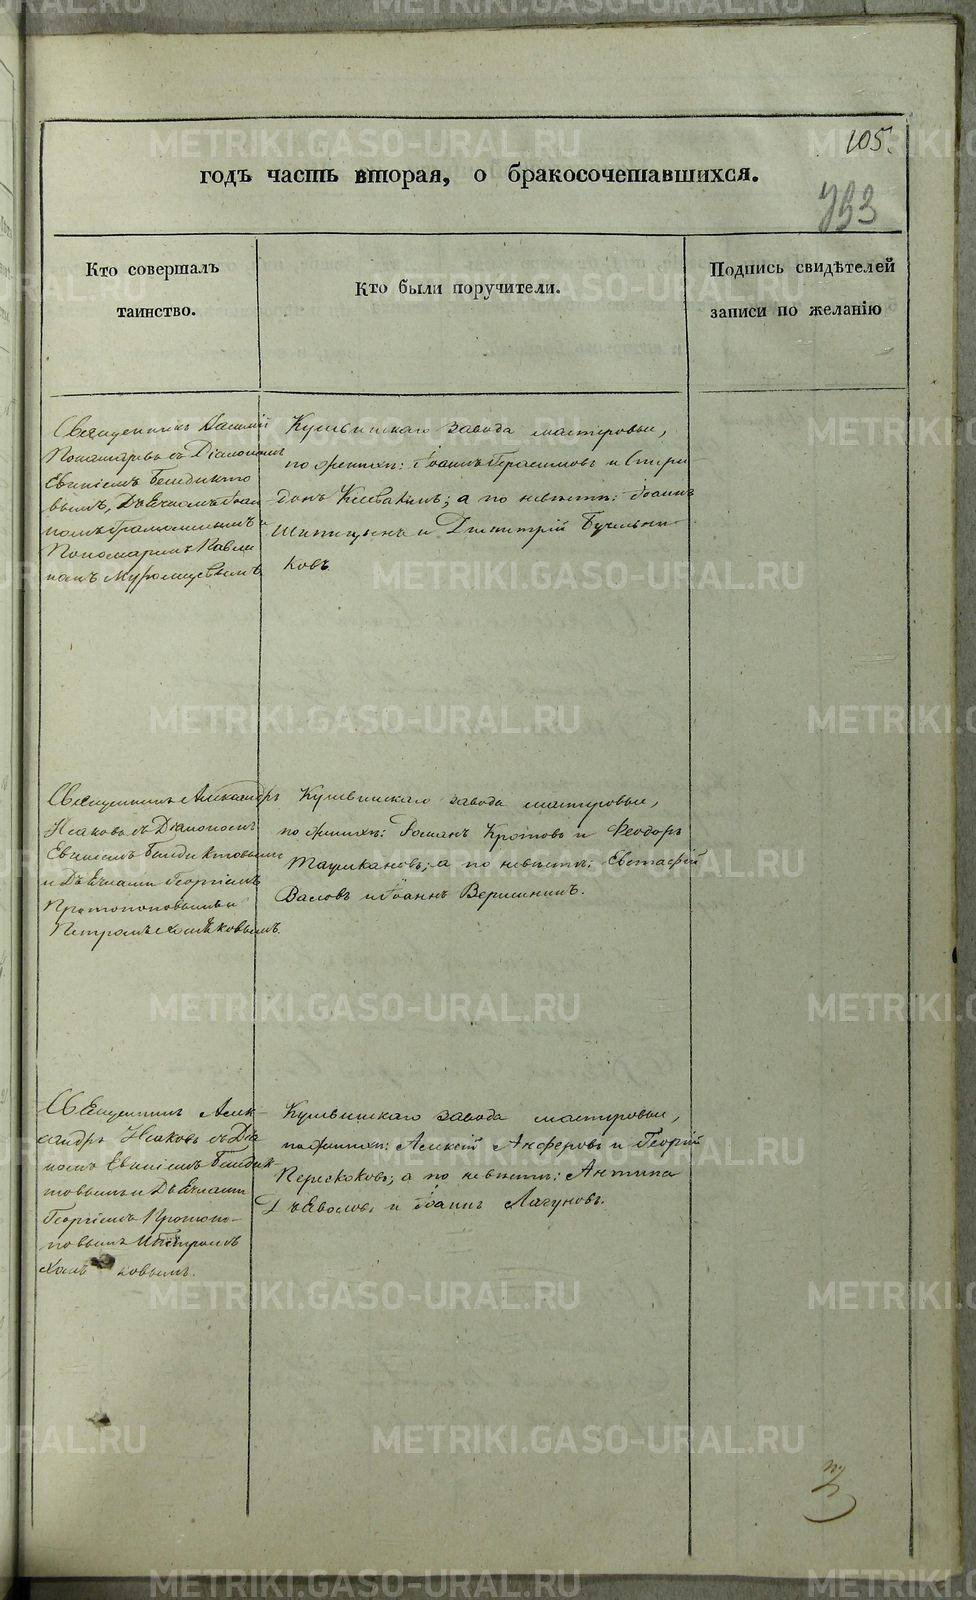 105.
годъ часть вторая, о бракосочетавшихся.
793
Кто совершалъ
таинство.
Кто были поручители.
Подпись свидѣтелей
записи по желанію
Священникъ Василій
съ Діакономъ
Евгеніемъ Бенедикто
вымъ, Дьячкомъ Іоан
номъ и
Пономаремъ Павли
номъ
Кушвинскаго завода мастеровые,
по женихѣ: Іоаннъ Герасимовъ и Спири
донъ а по невѣстѣ: Іоаннъ
Шипицынъ и Димитрій Бучельни
ковъ.
Священникъ Александръ
Исаковъ съ Діакономъ
Евгеніемъ Бенедиктовымъ
и Дьячками Георгіемъ
Протопоповымъ и
Петромъ Хомяковымъ.
Кушвинскаго завода мастеровые,
по женихѣ: Романъ Кротовъ и Феодоръ
а по невѣстѣ: Евстафій
Валовъ и Іоаннъ Вершининъ.
Священникъ Алек-
сандръ Исаковъ съ Діа
кономъ Евгеніемъ Бенедик-
товымъ и Дьячками
Георгіемъ Протопо-
повымъ и Петромъ
ковымъ.
Кушвинскаго завода мастеровые,
по женихѣ: Алексій Анферовъ и Георгій
Перескоковъ; а по невѣстѣ: Антипа
и Іоаннъ Лагуновъ.
METRIKI.GASO-URAL.RU